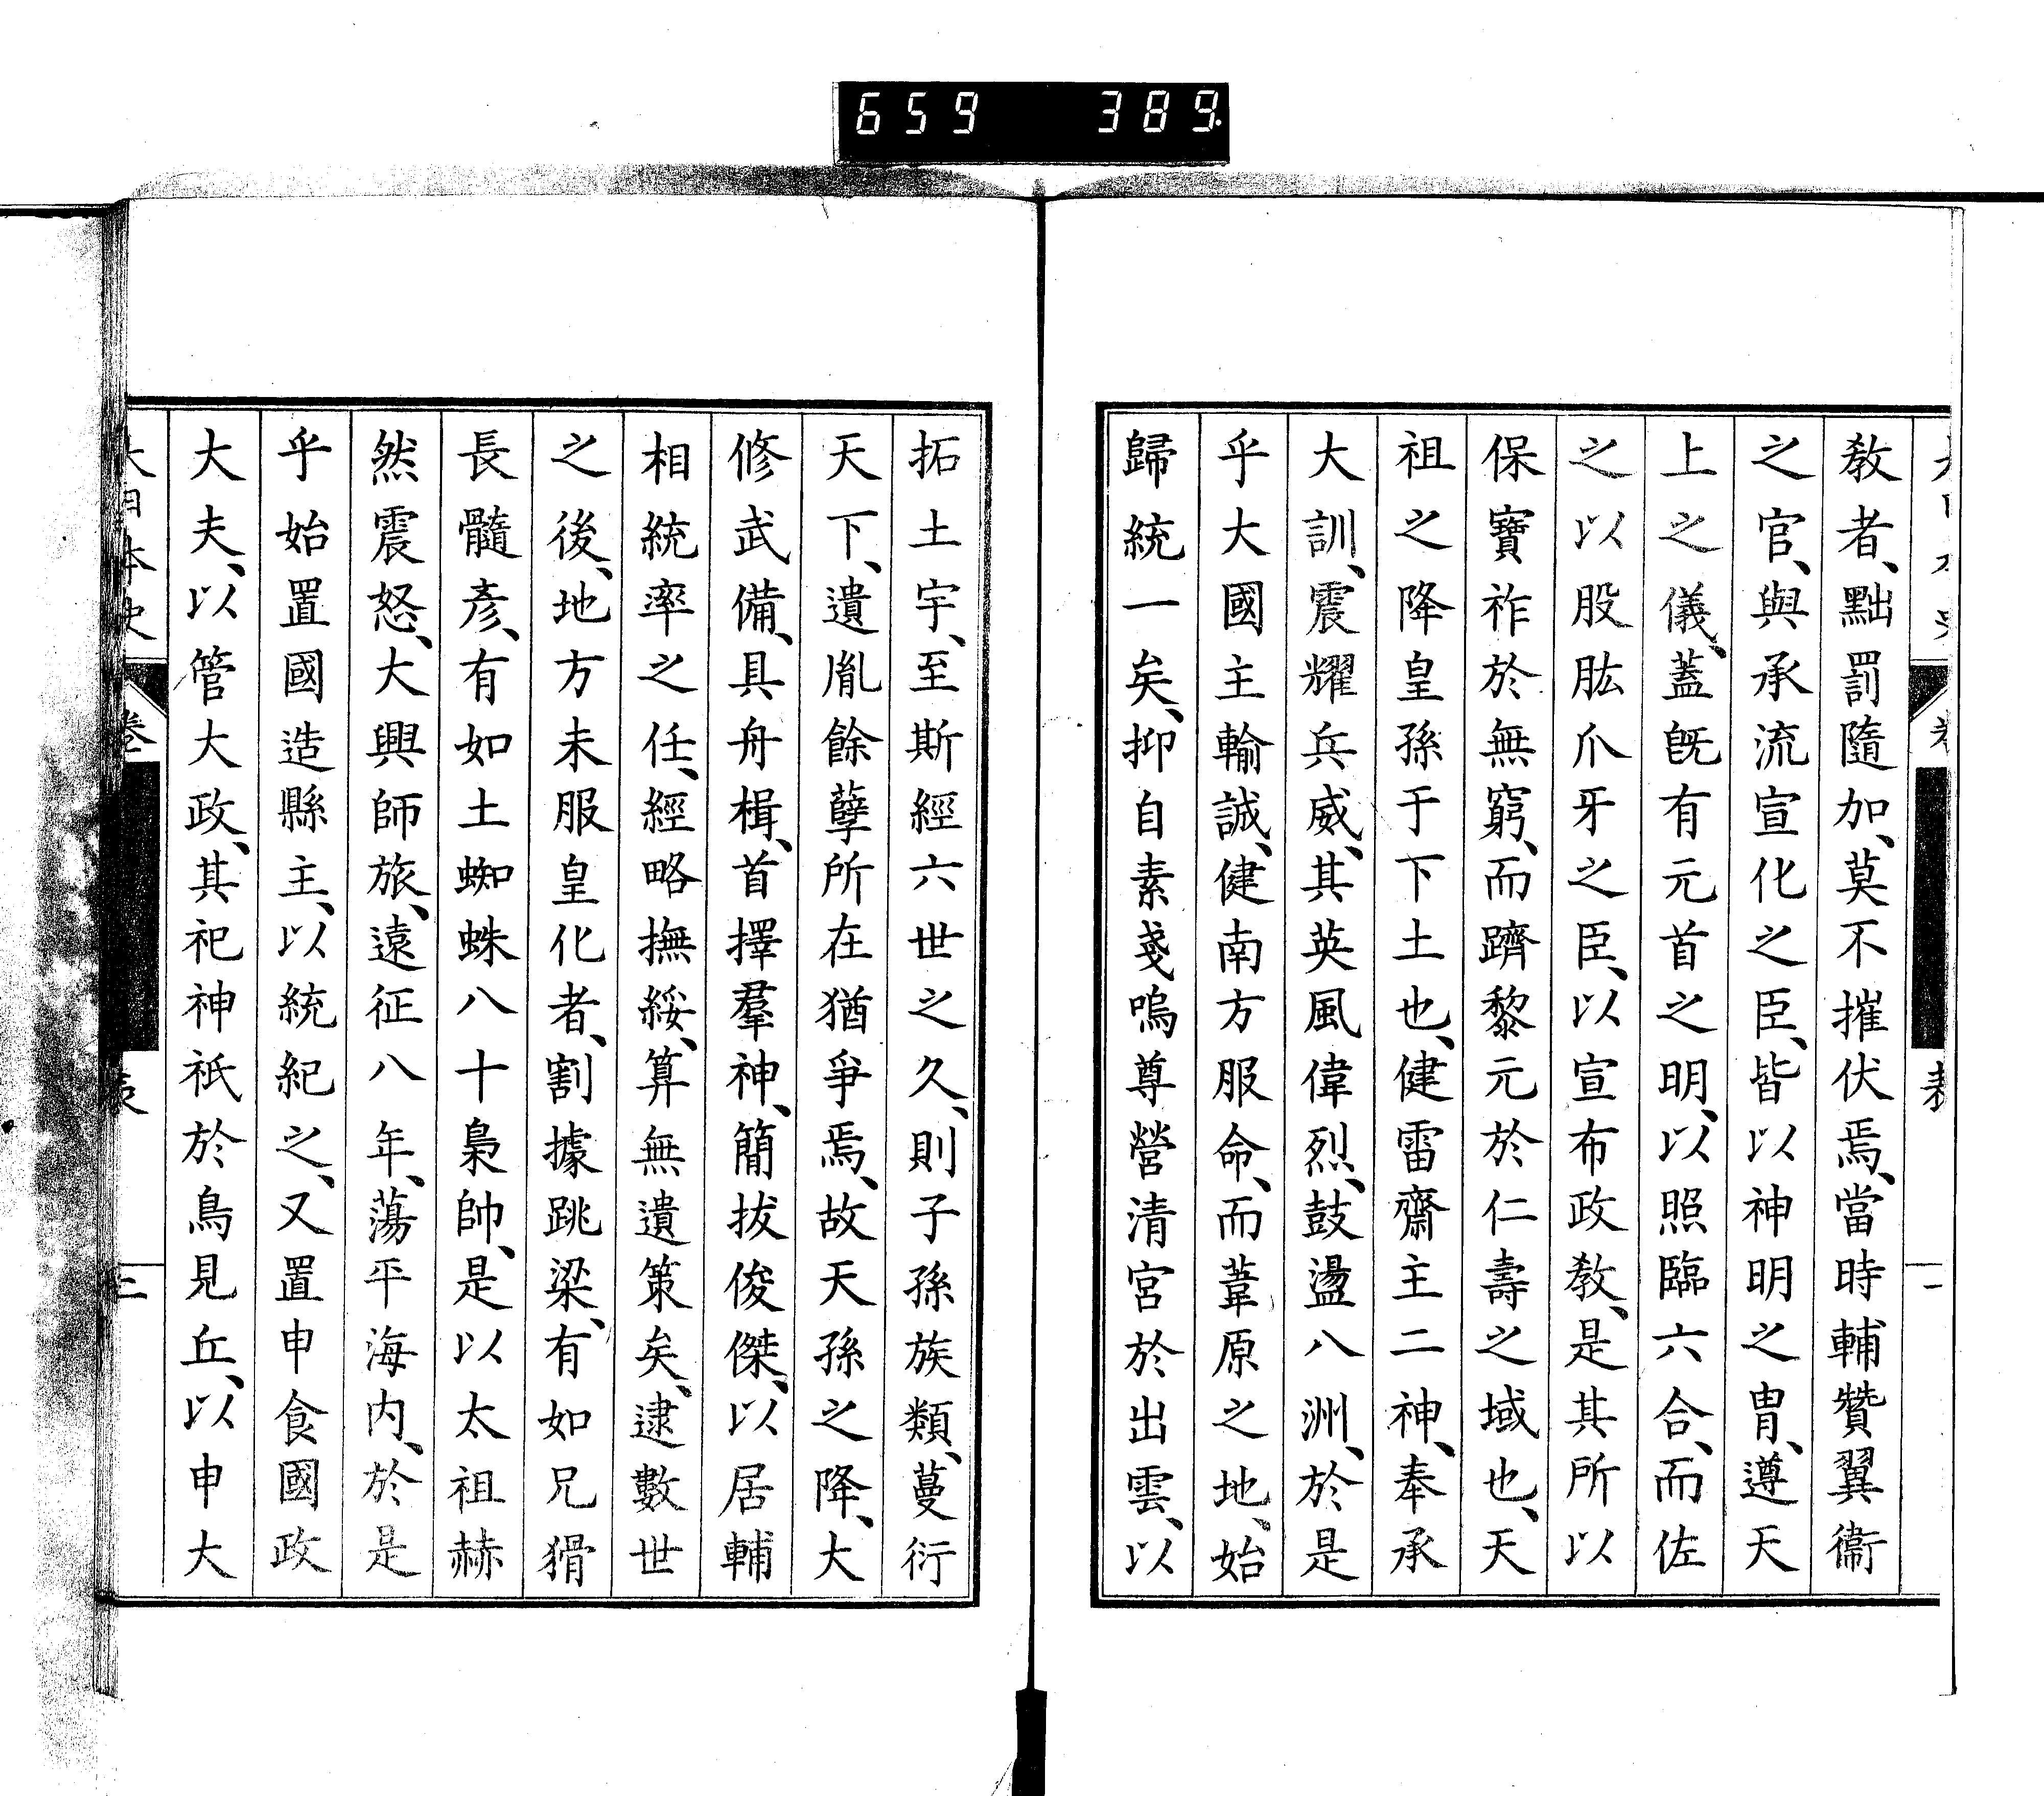 659 389.
教者、黜罰隨加、莫不摧伏焉、當時輔贊翼衞
之官、與承流宣化之臣、皆以神明之冑、遵天
上之儀、蓋旣有元首之明、以照臨六合、而佐
之以股肱爪牙之臣、以宣布政教、是其所以
保寶祚於無窮、而躋黎元於仁壽之域也、天
祖之降皇孫于下土也、健雷齋主二神、奉承
大訓、震耀兵威、其英風偉烈、鼓盪八洲、於是
乎大國主輸誠、健南方服命、而葦原之地、始
歸統一矣、抑自素戔嗚尊營清宮於出雲、以
拓土宇、至斯經六世之久、則子孫族類、蔓衍
天下、遺胤餘孽所在猶爭焉、故天孫之降、大
修武備、具舟楫、首擇羣神、簡拔俊傑、以居輔
相統率之任、經略撫綏、算無遺策矣、逮數世
之後、地方未服皇化者、割據跳梁、有如兄猾
長髓彥、有如土蜘蛛八十梟帥、是以太祖赫
然震怒、大興師旅、遠征八年、蕩平海内、於是
乎始置國造縣主、以統紀之、又置申食國政
大夫、以管大政、其祀神祇於鳥見丘、以申大
大日本史 卷 表 二